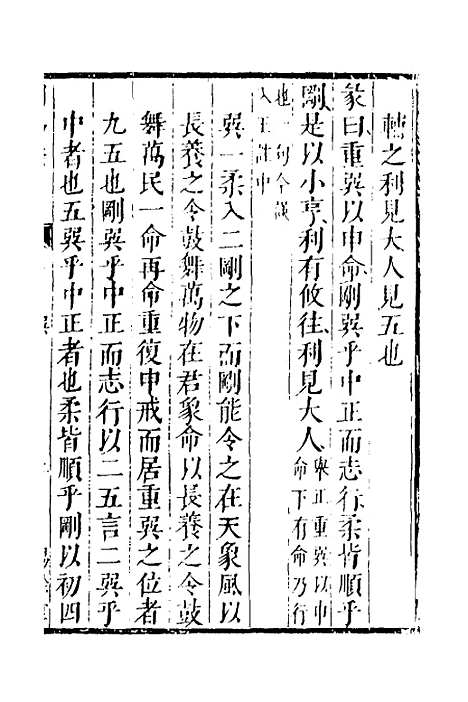 轉之利見大人見五也
彖曰重巽以申命剛巽乎中正而志行柔皆順乎
剛是以小亨利有攸往利見大人舉正重巽以申命下有命乃行
也一句今誤入王註中
巽一柔入二剛之下而剛能令之在天象風以
長養之令鼓舞萬物在君象命以長養之令鼓
舞萬民一命再命重復申戒而居重巽之位者
九五也剛巽乎中正而志行以二五言二巽乎
中者也五巽乎中正者也柔皆順乎剛以初四